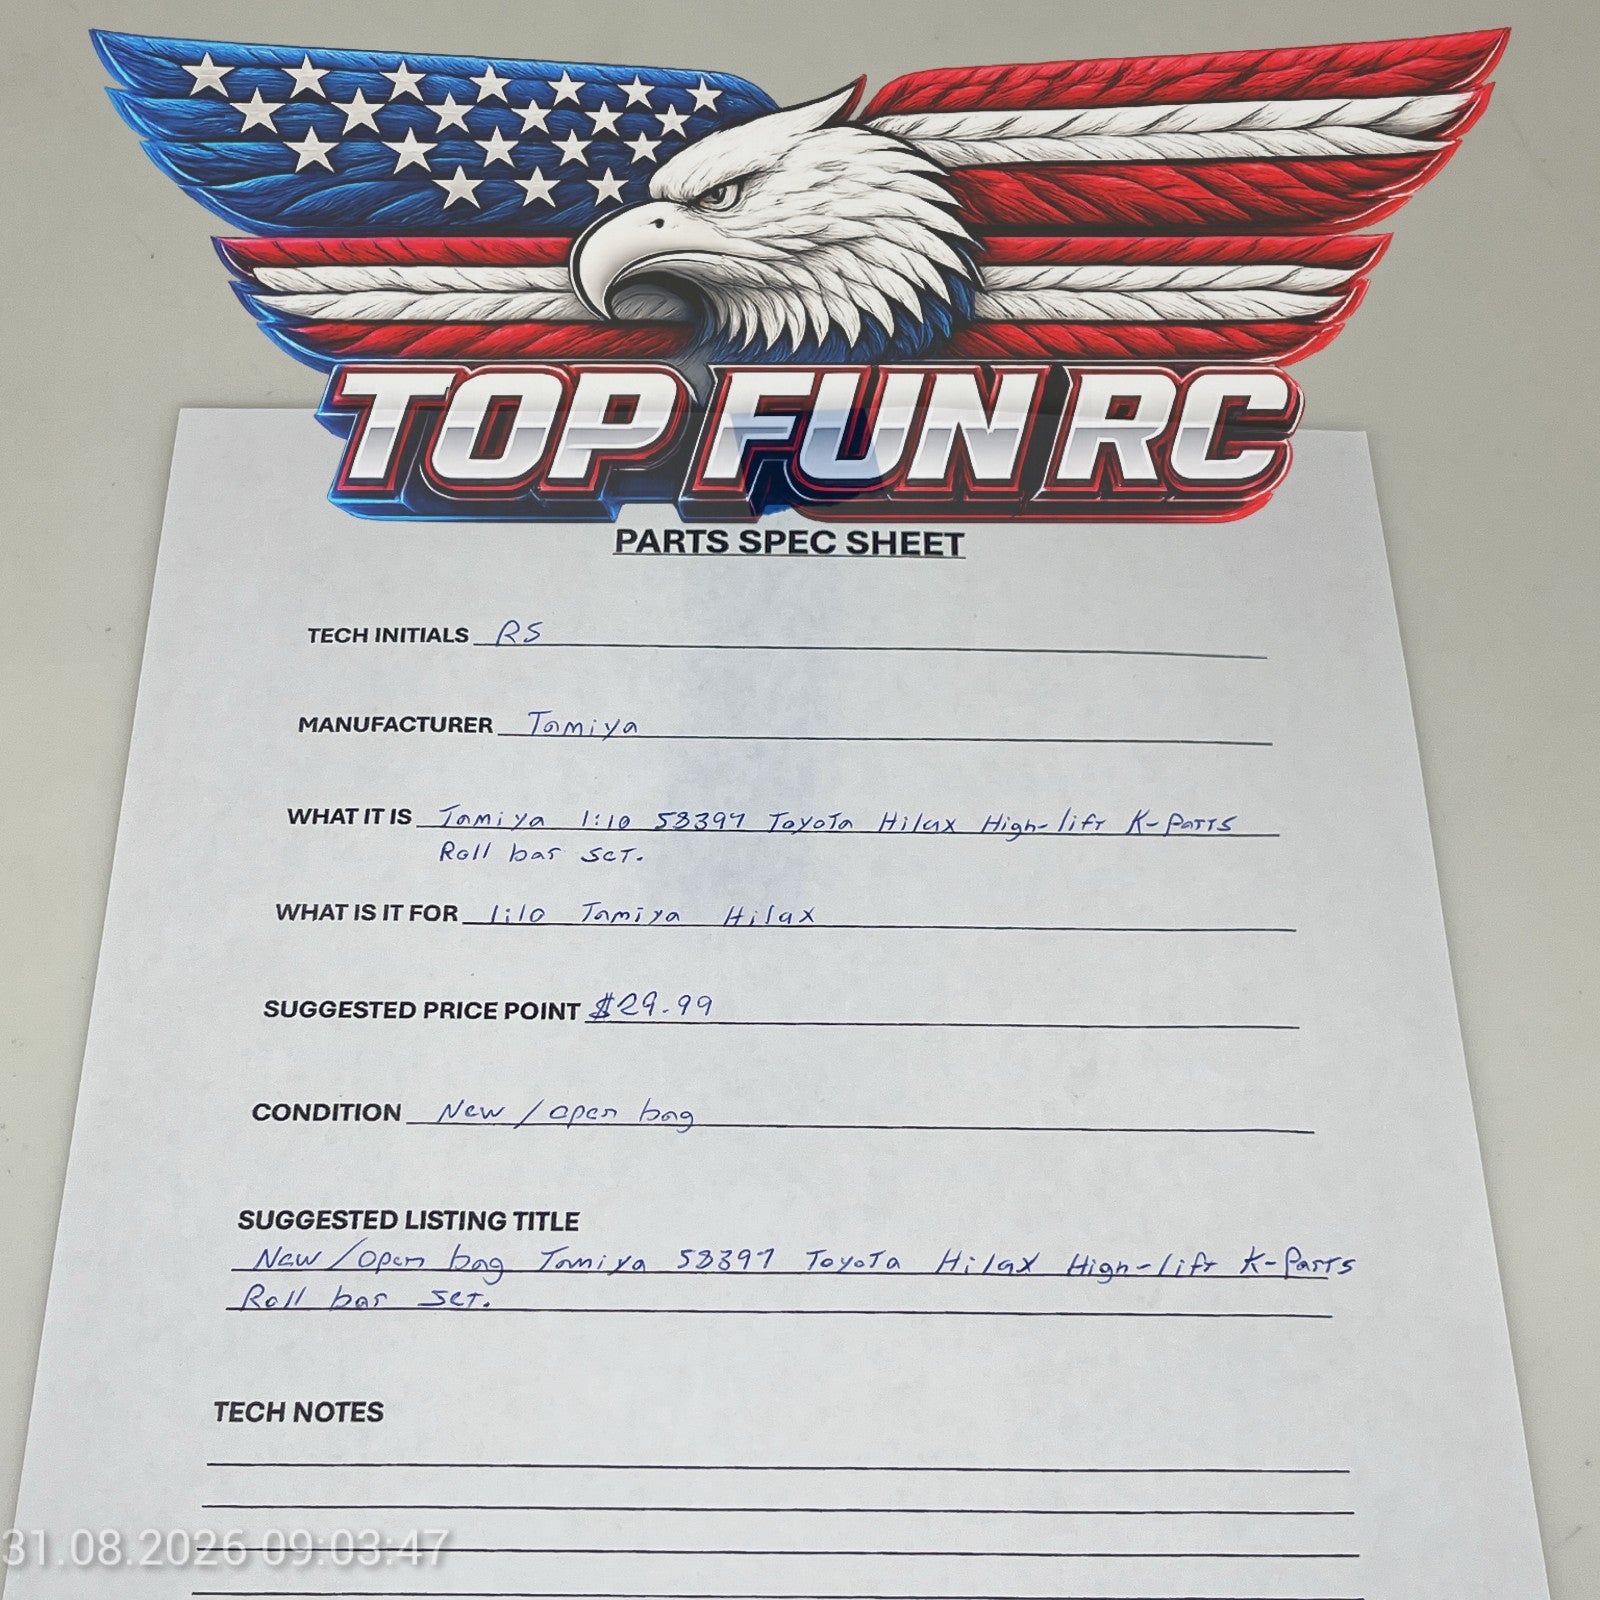 TOP FUN RC
PARTS SPEC SHEET
TECH INITIALS RS
MANUFACTURER Tamiya
WHAT IT IS Tamiya 1:10 58397 Toyota Hilux High-lift K-Parts
Roll bar set.
WHAT IS IT FOR 1:10 Tamiya Hilux
SUGGESTED PRICE POINT $29.99
CONDITION New / open bag
SUGGESTED LISTING TITLE
New / open bag Tamiya 58397 Toyota Hilux High-lift K-Parts
Roll bar set.
TECH NOTES
31.08.2026 09:03:47